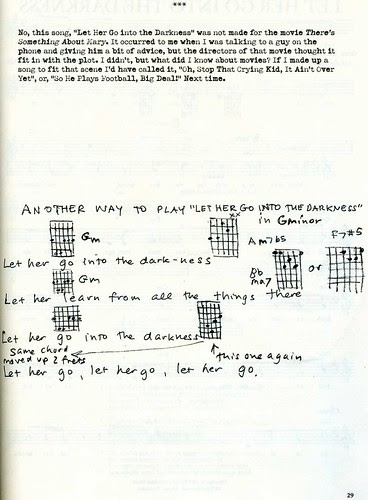 ***
No, this song, "Let Her Go into the Darkness" was not made for the movie There's
Something About Mary. It occurred to me when I was talking to a guy on the
phone and giving him a bit of advice, but the directors of that movie thought it
fit in with the plot. I didn't, but what did I know about movies? If I made up a
song to fit that scene I'd have called it, "Oh, Stop That Crying Kid, It Ain't Over
Yet", or, "So He Plays Football, Big Deal!" Next time.
ANOTHER WAY TO PLAY "LET HER GO INTO THE DARKNESS"
in Gminor
xx
Gm
Am7b5
F7#5
Let her go into the dark-ness
Gm
Bb
ma7
or
Let her learn from all the things there
Let her go into the darkness
same chord
moved up 2 frets
this one again
Let her go, let her go, let her go.
29